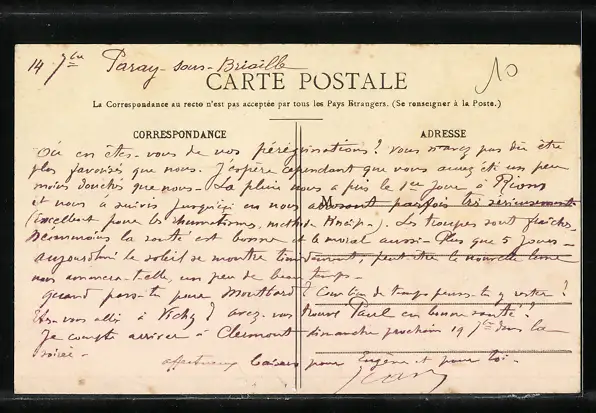 14 7bre Paray-sous-Briaille
10
CARTE POSTALE
La Correspondance au recto n'est pas acceptée par tous les Pays Étrangers. (Se renseigner à la Poste.)
CORRESPONDANCE
ADRESSE
Où en êtes-vous de vos pérégrinations ? Vous n'avez pas dû être
plus favorisés que nous. J'espère cependant que vous aurez été un peu
moins douchés que nous. La pluie nous a pris le 1er jour à Riom
et nous a suivis jusqu'ici en nous arrosant parfois très sérieusement
(Excellent pour les rhumatismes, méthode Kneip). Les troupes sont fraîches.
Néanmoins la santé est bonne et le moral aussi. Plus que 5 jours.
aujourd'hui le soleil se montre timidement, peut-être la nouvelle lune
nous amènera-t-elle, un peu de beau temps.
quand pars-tu pour Montbard ? Combien de temps penses-tu y rester ?
Etes-vous allé à Vichy ? avez-vous trouvé Paul en bonne santé ?
Je compte arriver à Clermont dimanche prochain 19 7bre dans la
soirée.
affectueux baisers pour Eugène et pour toi.
Jean